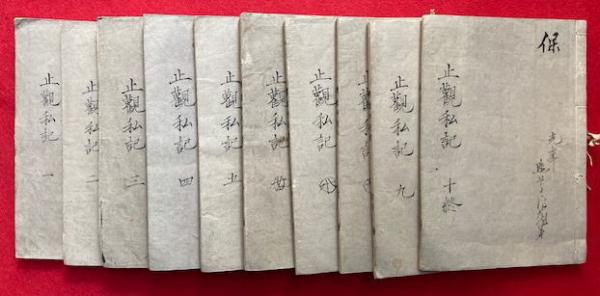 止觀私記 一
止觀私記 二
止觀私記 三
止觀私記 四
止觀私記 五
止觀私記
止觀私記
止觀私記 九
止觀私記 十終
保